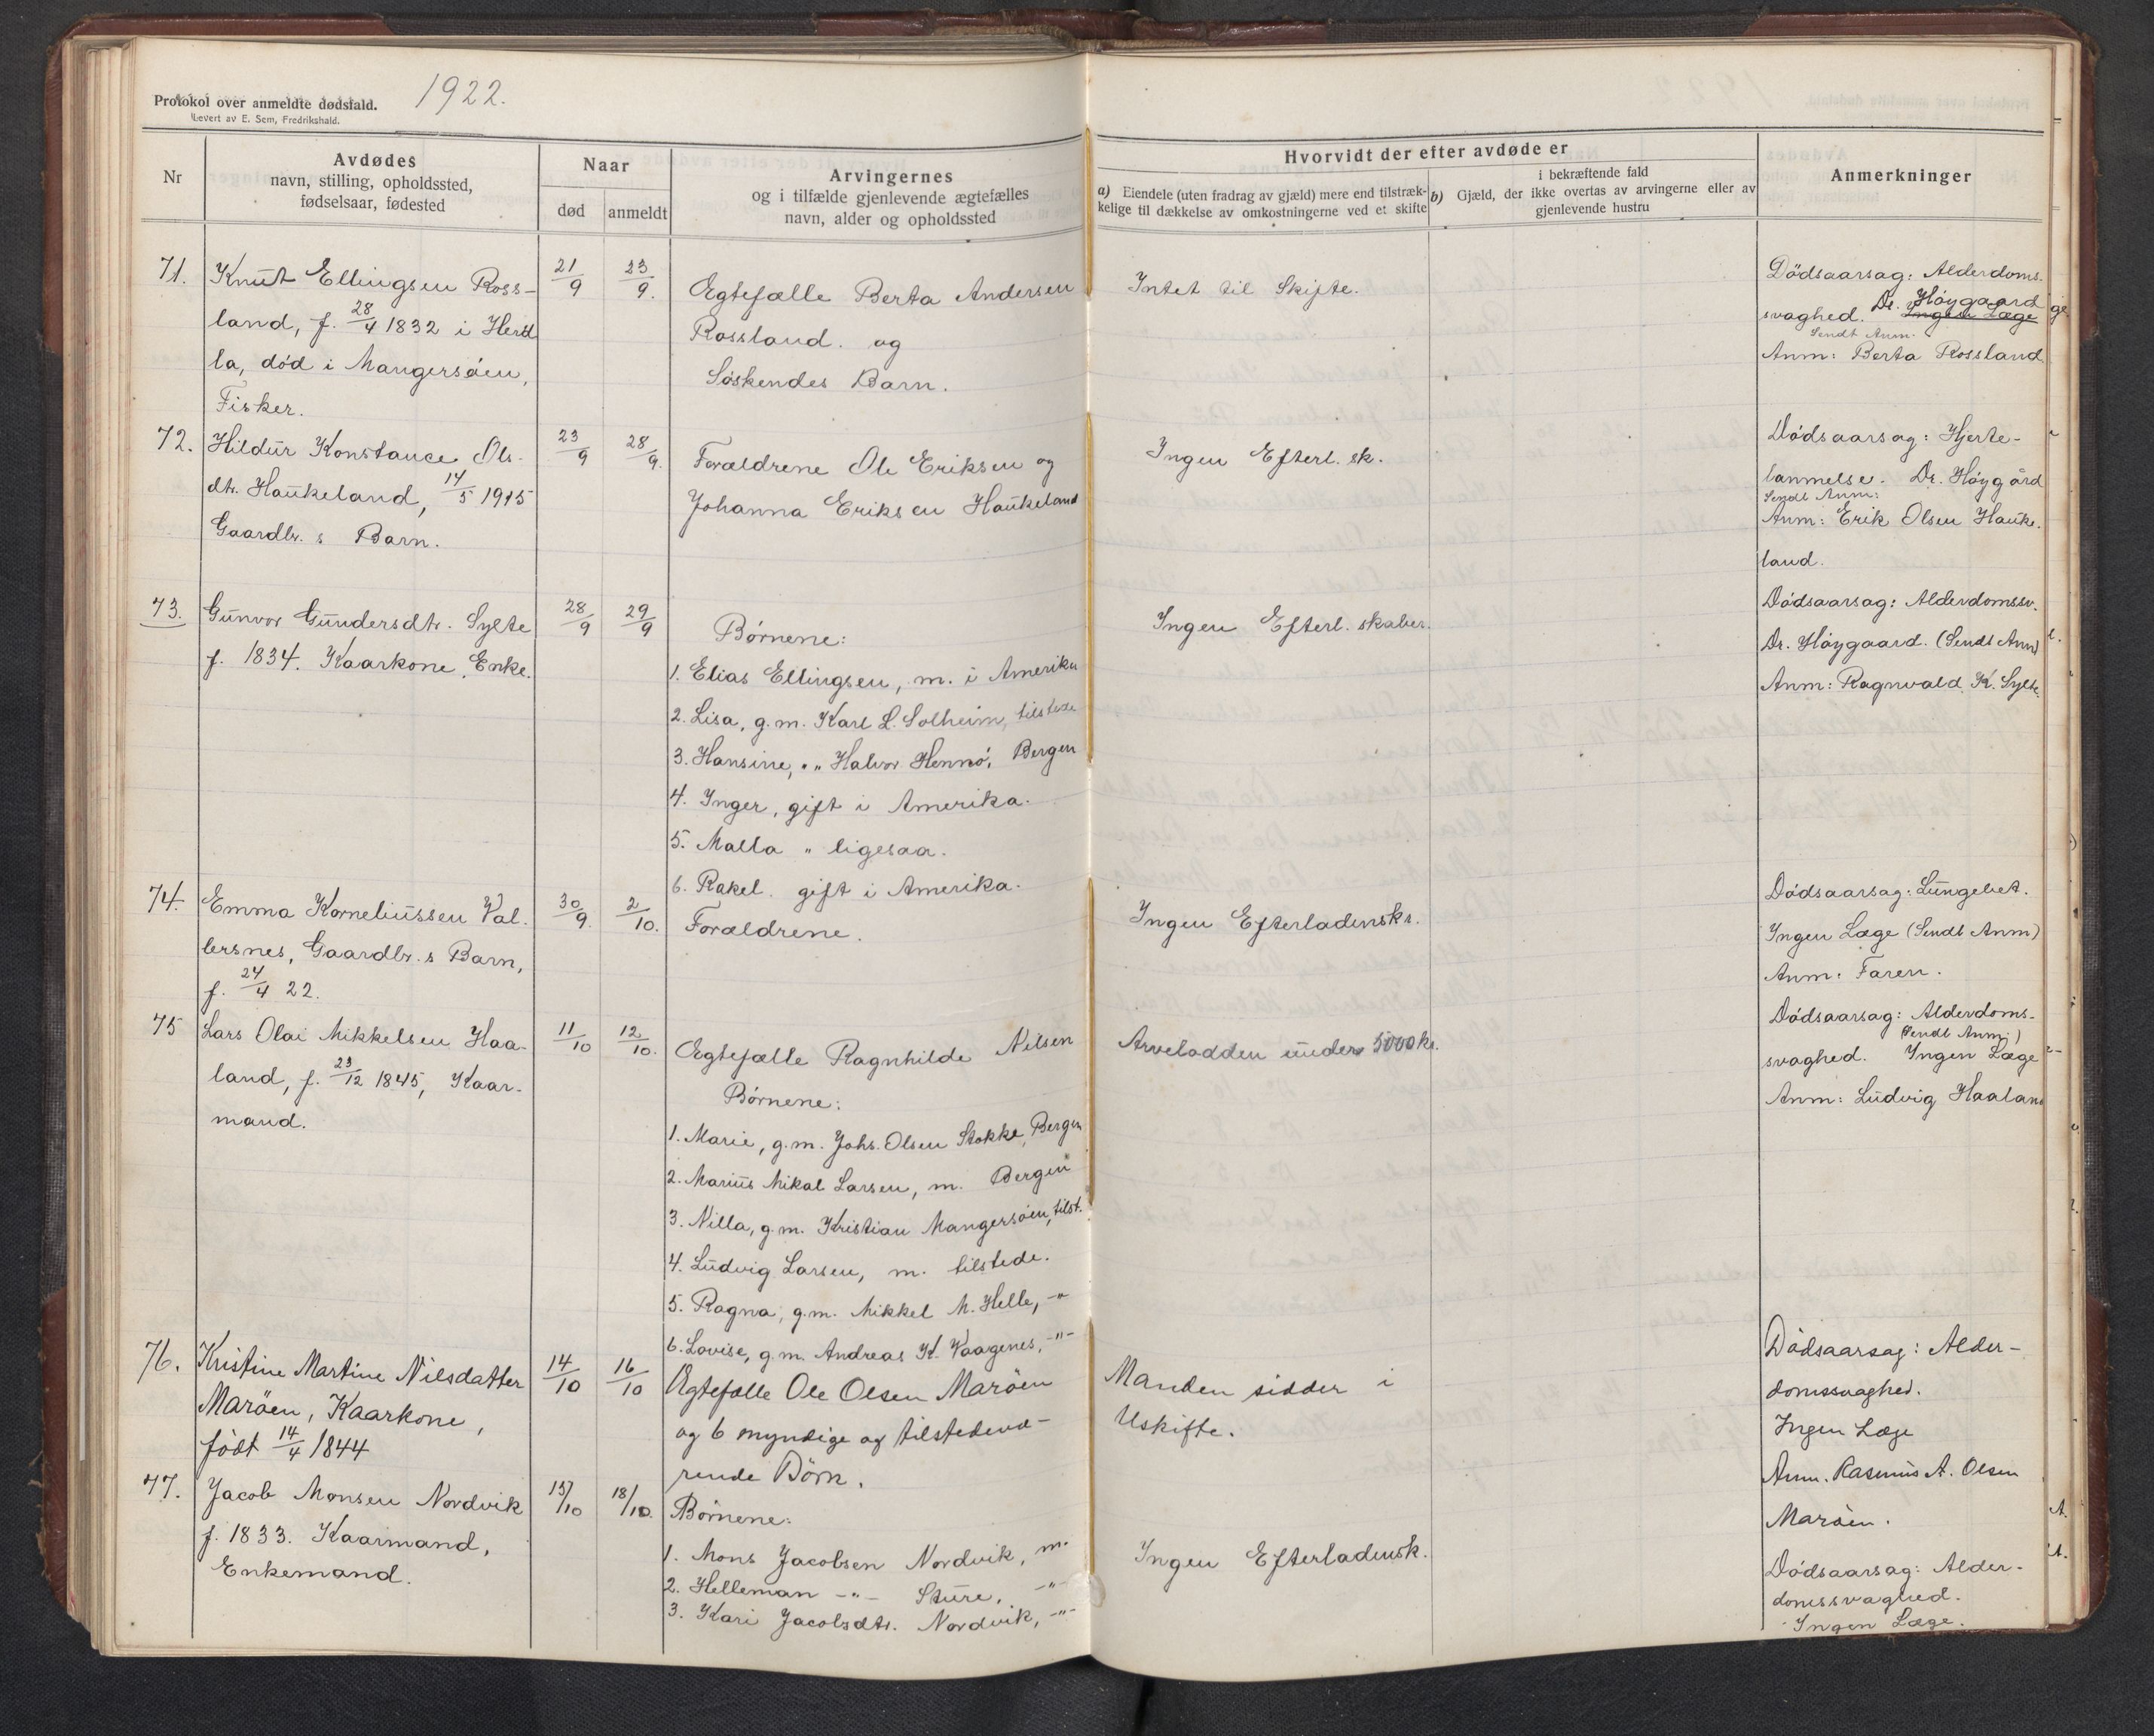 Protokol over anmeldte dødsfald. 1922.
Levert av E. Sem, Fredrikshald.
Nr
Avdødes
navn, stilling, opholdssted,
fødselsaar, fødested
Naar
død
anmeldt
Arvingernes
og i tilfælde gjenlevende ægtefælles
navn, alder og opholdssted
Hvorvidt der efter avdøde er
a) Eiendele (uten fradrag av gjæld) mere end tilstræk-
kelige til dækkelse av omkostningerne ved et skifte
i bekræftende fald
b) Gjæld, der ikke overtas av arvingerne eller av
gjenlevende hustru
Anmerkninger
71.
Knut Ellingsen Ross-
land, f. 28/4 1832 i Herd
la, död i Mangersöen,
Fisker.
21/9
23/9.
Egtefælle Berta Andersen
Rossland. og
Söskendes Barn.
Intet til Skifte.
Dödsaarsag: Alderdoms.
svaghed. Dr. Höygaard
Ingen Læge
Sendt Anm.
Anm: Berta Rossland
72.
Hildur Konstance Ols-
dtr. Haukeland, 14/5 1915
Gaardbr.s Barn.
23/9
28/9.
Forældrene Ole Eriksen og
Johanna Eriksen Haukeland
Ingen Efterl. sk.
Dödsaarsag: Hjerte-
lammelse. Dr. Höygård
Sendt Anm:
Anm: Erik Olsen Hauke.
land.
73.
Gunvor Gundersdtr. Sylte
f. 1834. Kaarkone, Enke.
28/9
29/9
Börnene:
1. Elias Ellingsen, m. i Amerika
2. Lisa, g.m. Karl L. Solheim, tilstede
3. Hansine, " " Halvor Hennö, Bergen
4. Inger, gift i Amerika.
5. Malla " ligesaa.
6. Rakel. gift i Amerika.
Ingen Efterl. skaber.
Dödsaarsag: Alderdomssv.
Dr. Höygaard. (Sendt Anm)
Anm: Ragnvald K. Sylte.
74.
Emma Korneliussen Val-
lersnes, Gaardbr.s Barn,
f. 24/4 22.
30/9.
2/10.
Forældrene.
Ingen Efterladensks.
Dödsaarsag: Lungebet.
Ingen Læge (Sendt Anm)
Anm: Faren.
75
Lars Olai Mikkelsen Haa-
land, f. 23/12 1845, Kaar-
mand.
11/10
12/10.
Egtefælle Ragnhilde Nilsen
Börnene:
1. Marie, g.m. Johs. Olsen Stokke, Bergen
2. Marius Mikal Larsen, m. Bergen
3. Nilla, g.m. Kristian Mangersöen, tilst.
4. Ludvig Larsen, m. tilstede.
5. Ragna, g.m. Mikkel M. Helle, -"
6. Lovise, g.m. Andreas K. Vaagenes, -"-
Arvelodden under 5000 kr.
Dödsaarsag: Alderdoms-
(Sendt Anm.)
svaghed. Ingen Læge
Anm: Ludvig Haaland
76.
Kristine Martine Nilsdatter
Maröen, Kaarkone,
født 14/4 1844
14/10
16/10
Ægtefælle Ole Olsen Maröen
og 6 myndige og tilstedevæ-
rende Börn.
Manden sidder i
Uskifte.
Dödsaarsag: Alder-
domssvaghed.
Ingen Læge
Anm. Rasmus A. Olsen
Maröen.
77.
Jacob Monsen Nordvik
f. 1833. Kaarmand,
Enkemand.
15/10
18/10.
Börnene:
1. Mons Jacobsen Nordvik, m.
2. Helleman -"- Sture, -"-
3. Kari Jacobsdtr. Nordvik, -"-
Ingen Efterladensk.
Dödsaarsag: Alder-
domssvaghed.
Ingen Læge.